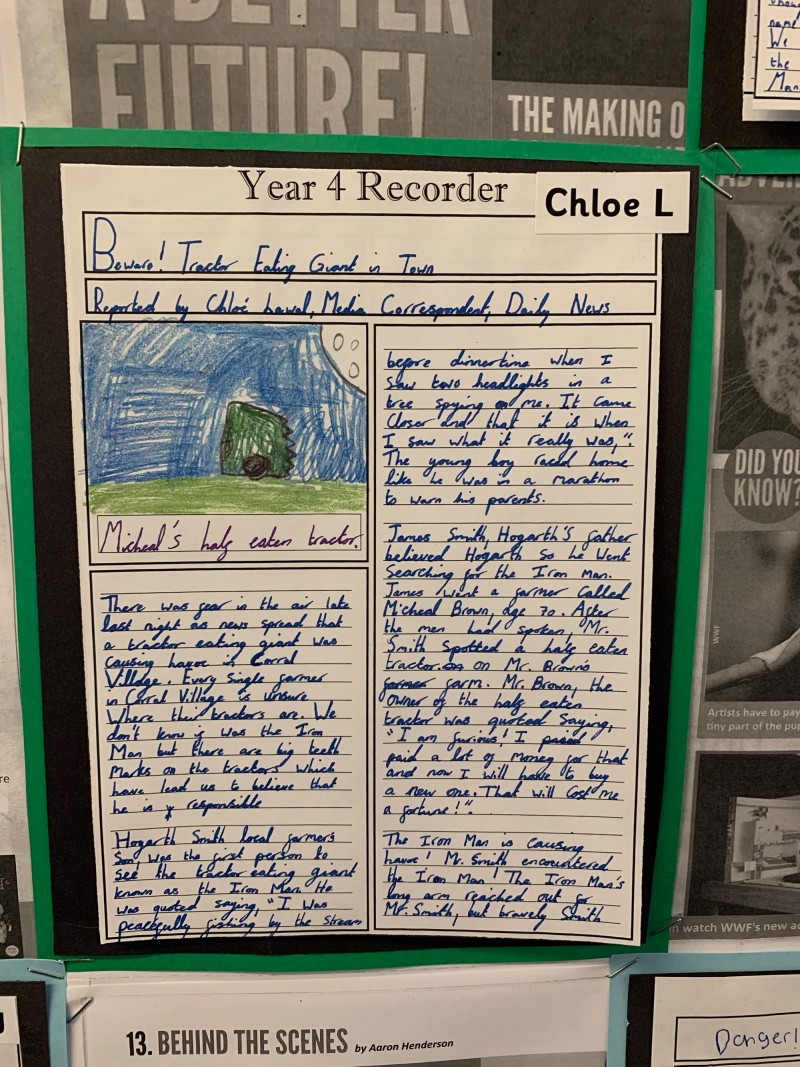 A BETTER
FUTURE!
THE MAKING O
name
We
the
Man
Year 4 Recorder
Chloe L
Beware! Tractor Eating Giant in Town
Reported by Chloé Lawal, Media Correspondent, Daily News
Micheal's half eaten tractor.
There was fear in the air late
last night as news spread that
a tractor eating giant was
causing havoc in Corral
Village. Every single farmer
in Corral Village is unsure
where their tractors are. We
don't know if was the Iron
Man but there are big teeth
marks on the tractors which
have lead us to believe that
he is responsible
Hogarth Smith local farmer's
son, was the first person to
see the tractor eating giant
known as the Iron Man. He
was quoted saying, "I was
peacefully fishing by the stream
before dinnertime when I
saw two headlights in a
tree spying on me. It came
closer and that it is when
I saw what it really was,".
The young boy raced home
like he was in a marathon
to warn his parents.
James Smith, Hogarth's father
believed Hogarth so he went
searching for the Iron Man.
James went a farmer called
Micheal Brown, age 70. After
the men had spoken, Mr.
Smith spotted a half eaten
tractor on Mr. Brown's
farmer farm. Mr. Brown, the
owner of the half eaten
tractor was quoted saying,
"I am furious! I paied
paid a lot of money for that
and now I will have to buy
a new one. That will cost me
a fortune!".
The Iron Man is causing
havoc! Mr. Smith encountered
the Iron Man! The Iron Man's
long arm reached out for
Mr. Smith, but bravely Smith
DID YOU
KNOW?
WWF
Artists have to pay
tiny part of the pup
n watch WWF's new ad
re
13. BEHIND THE SCENES by Aaron Henderson
Danger!